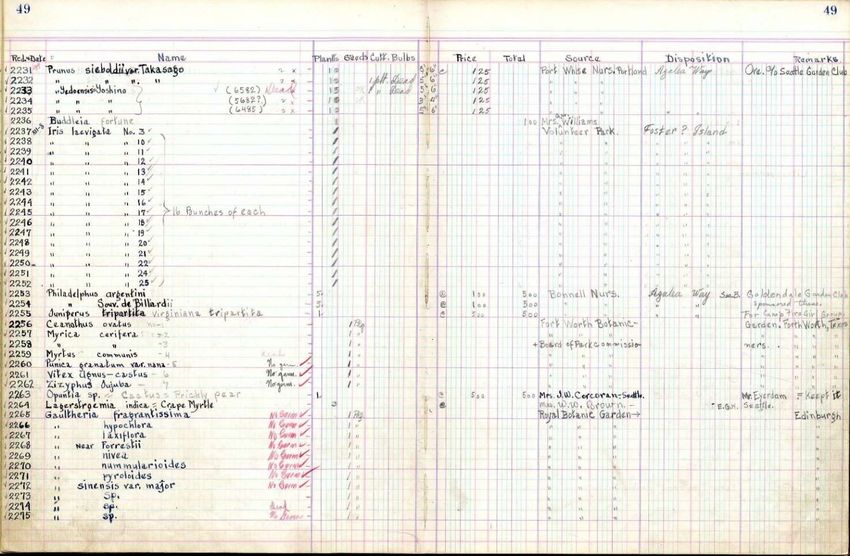 49 49
Rcd. Date Name Plants Seeds Cutt. Bulbs Price Total Source Disposition Remarks
2231 Prunus sieboldii var. Takasago " x 15 5' 6' c 1 25 Port White Nurs. Portland Azalea Way Ore. % Seattle Garden Club
2232 " " " " " x 15 1 plt. Dead 5' 6' 1 25 " " " "
2233 " Yedoensis Yoshino (6582) Dead 15 1 " Dead 5' 6' 1 25 " " " "
2234 " " " (5632?) 15 1 25 " " " "
2235 " " " (6485) 15 5' 6' 1 25 " " " "
2236 Buddleia fortune 1 1 00 Mrs. Williams
2237 Iris laevigata No. 3 Volunteer Park. Foster ? Island
2238 " " " 10 " " " "
2239 " " " 11 " " " "
2240 " " " 12 " " " "
2241 " " " 13 " " " "
2242 " " " 14 " " " "
2243 " " " 15 " " " "
2244 " " " 16 " " " "
2245 " " " 17 16 Bunches of each " " " "
2246 " " " 18 " " " "
2247 " " " 19 " " " "
2248 " " " 20 " " " "
2249 " " " 21 " " " "
2250 " " " 22 " " " "
2251 " " " 24 " " " "
2252 " " " 25 " " " "
2253 Philadelphus argentini 5 @ 1 00 5 00 Bonnell Nurs. Azalea Way See B. Goldendale Garden Club
2254 " Souv. de Billardii 5 @ 1 00 5 00 " " " " sponsored these.
2255 Juniperus tripartita virginiana tripartita @ 5 00 5 00 " " " " For Camp Fire Girl Group
2256 Ceanothus ovatus 1 Pkg Fort Worth Botanic- Garden. Forth Worth, Texas
2257 Myrica cerifera -2 1 " " " "
2258 " " -3 1 " + Board of Park commissio- ners.
2259 Myrtus communis - 4 Dead 1 " " " "
2260 Punica granatum var. nana - 5 No germ. 1 " " " "
2261 Vitex agnus-castus - 6 No germ. 1 " " " "
2262 Zizyphus jujuba - 7 No germ. 1 " " " "
2263 Opuntia sp. Cactus = Prickly pear 1 c 5 00 5 00 Mrs. J.W. Corcoran-Seattle. Mr. Eyerdam = Keept it
2264 Lagerstremia indica = Crape Myrtle 3 Mrs. W.W. Brown. - " E.G.H. Seattle.
2265 Gaultheria fragrantissima No Germ 1 Pkg Royal Botanic Garden→ Edinburgh
2266 " hypochlora No Germ 1 " " " " "
2267 " laxiflora No Germ 1 " " " " "
2268 " near Forrestii No Germ 1 " " " " "
2269 " nivea No Germ 1 " " " " "
2270 " nummularioides No Germ 1 " " " " "
2271 " pyroloides No Germ 1 " " " " "
2272 " sinensis var. major No Germ 1 " " " " "
2273 " sp. 1 " " " " "
2274 " sp. Dead 1 " " " " "
2275 " sp. No Germ 1 " " " " "